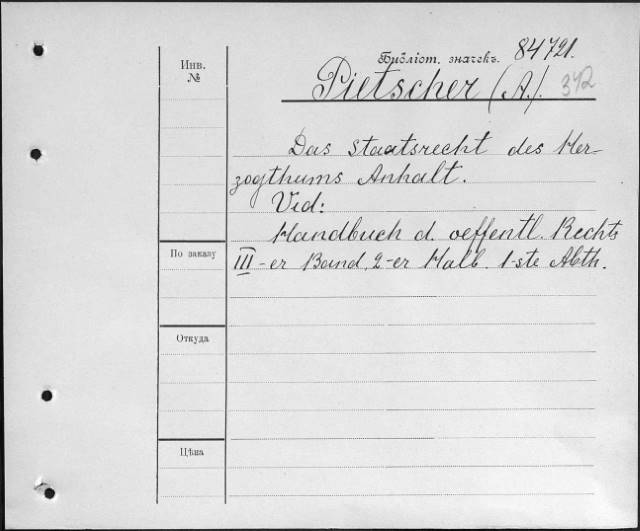 Инв.
№
Библіот. значекъ. 84721.
Pietscher (A.). 342
Das Staatsrecht des Her-
zogthums Anhalt.
Vid:
Handbuch d. oeffentl. Rechts
III-er Band. 2-er Halb. 1-ste Abth.
По заказу
Откуда
Цѣна